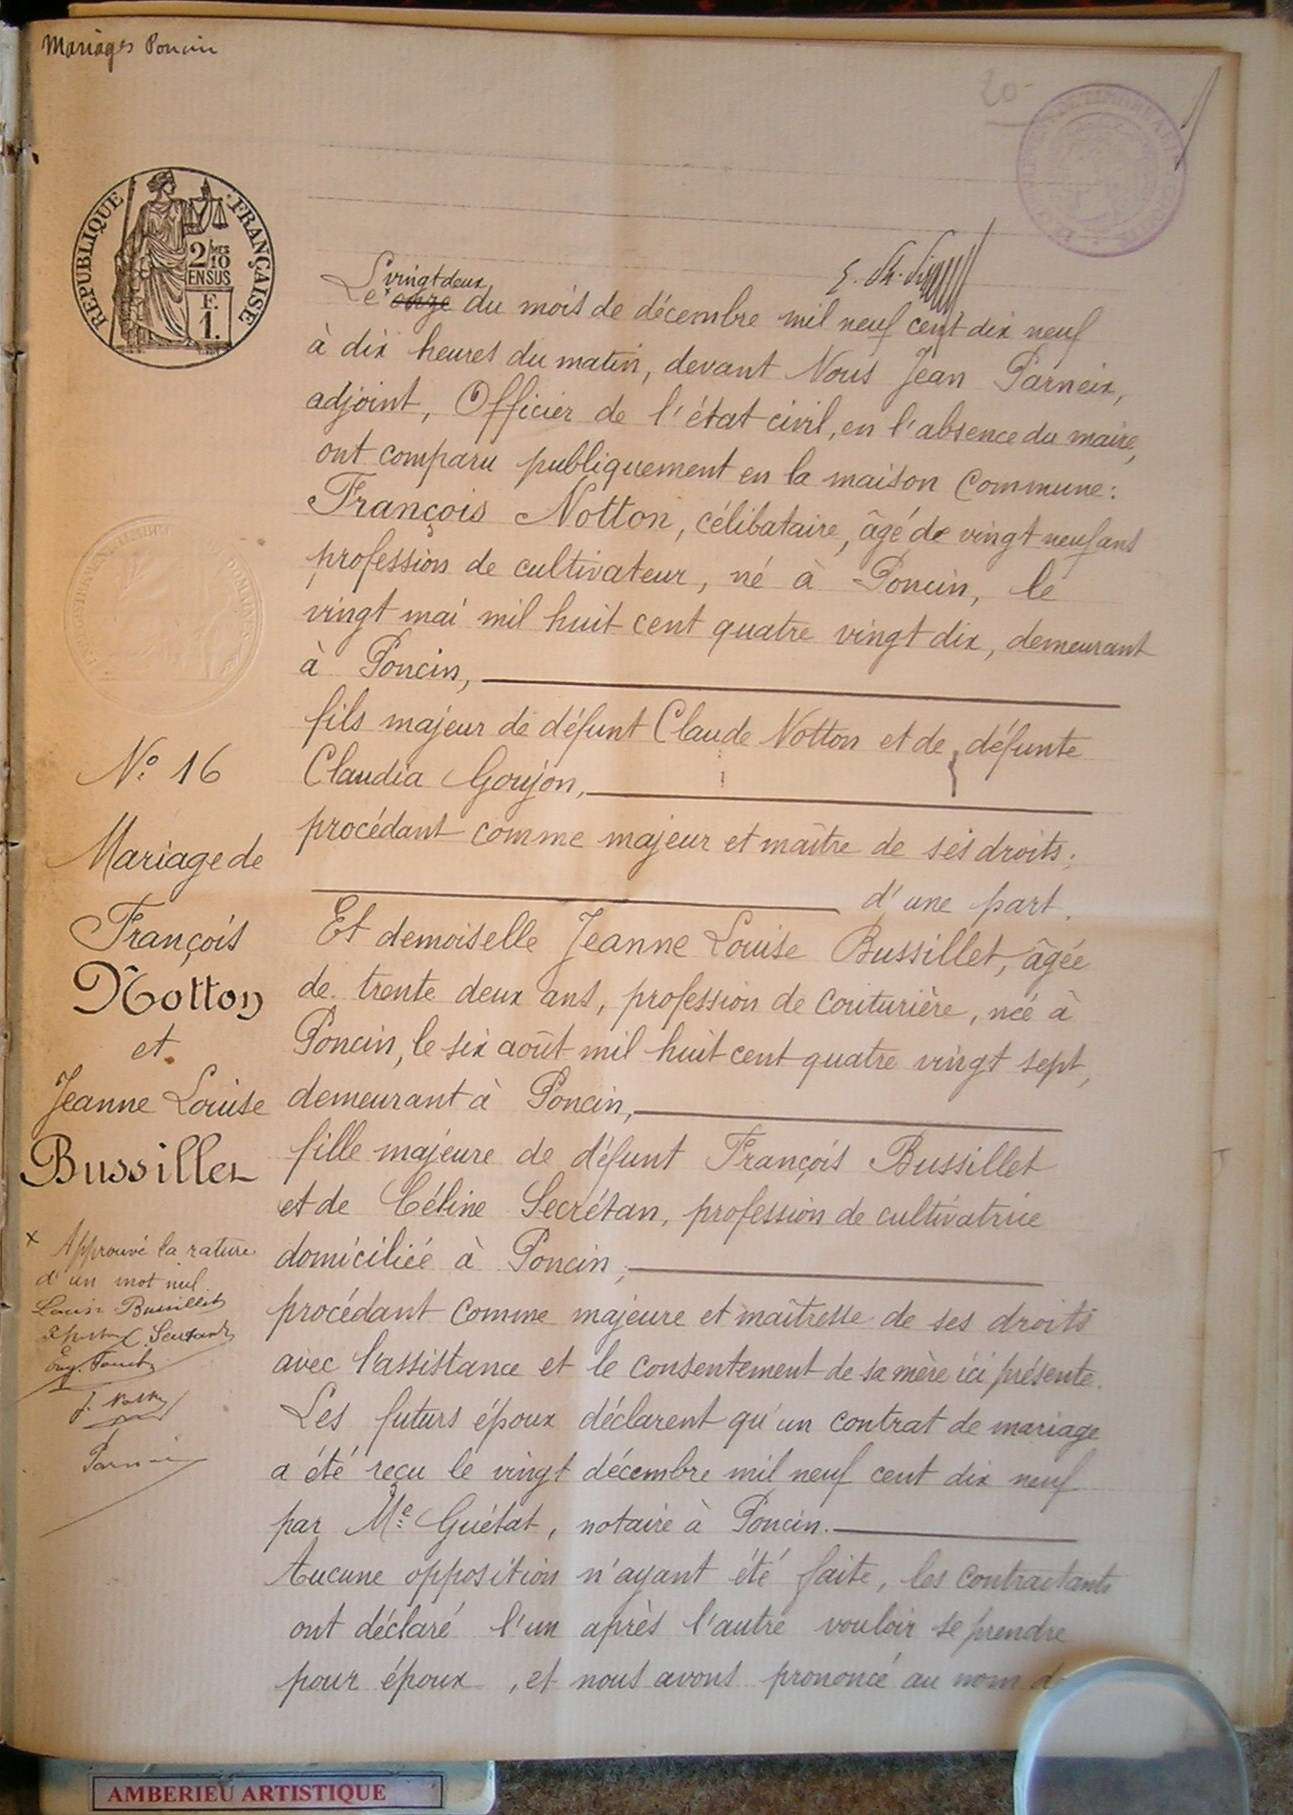 Mariages Poncin
20-
RÉPUBLIQUE FRANÇAISE
2/10 MES
EN SUS
F.
1.
vingt deux
Le x onze du mois de décembre mil neuf cent dix neuf
à dix heures du matin, devant Nous Jean Parneix,
adjoint, Officier de l'état civil, en l'absence du maire,
ont comparu publiquement en la maison commune:
François Notton, célibataire, âgé de vingt neuf ans
profession de cultivateur, né à Poncin, le
vingt mai mil huit cent quatre vingt dix, demeurant
à Poncin,
fils majeur de défunt Claude Notton et de défunte
Claudia Goujon,
procédant comme majeur et maître de ses droits;
d'une part.
Et demoiselle Jeanne Louise Bussillet, âgée
de trente deux ans, profession de couturière, née à
Poncin, le six août mil huit cent quatre vingt sept,
demeurant à Poncin,
fille majeure de défunt François Bussillet
et de Céline Secrétan, profession de cultivatrice
domiciliée à Poncin,
procédant comme majeure et maîtresse de ses droits
avec l'assistance et le consentement de sa mère ici présente.
Les futurs époux déclarent qu'un contrat de mariage
a été reçu le vingt décembre mil neuf cent dix neuf
par Me Guétat, notaire à Poncin.
Aucune opposition n'ayant été faite, les contractants
ont déclaré l'un après l'autre vouloir se prendre
pour époux, et nous avons prononcé au nom d
No 16
Mariage de
François
Notton
et
Jeanne Louise
Bussillet
x Approuvé la rature
d'un mot nul
Louise Bussillet
Parneix
AMBERIEU ARTISTIQUE